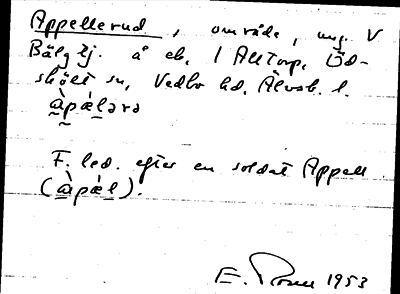 Appellerud, område, ung. V
Bälgsj. å eb. 1 Alltorp, Öd-
shölt sn, Vedbo hd, Älvsb. l.
àpǽlərə
F. led. efter en soldat Appell
(àpǽl).
E. 1953